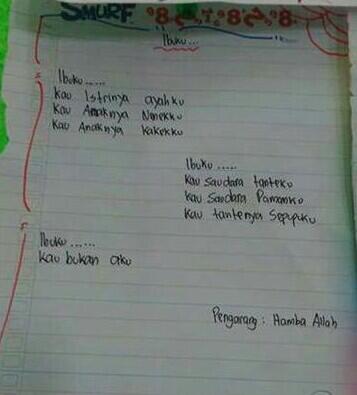 SMURF
Ibuku...
Ibuku.....
Kau Istrinya ayahku
Kau Anaknya Nenekku
Kau Anaknya Kakekku
Ibuku.....
Kau Saudara tanteku
Kau Saudara Pamanku
Kau tantenya Sepupuku
Ibuku......
Kau bukan aku
Pengarang : Hamba Allah